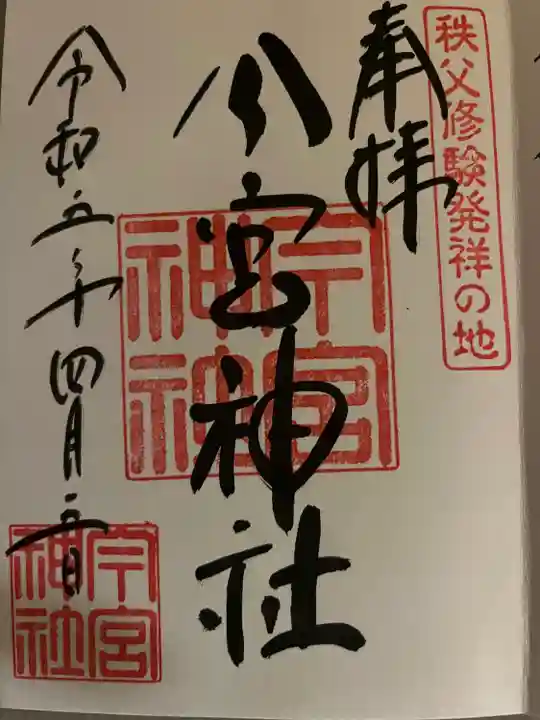 秩父修験発祥の地
奉拝
今宮神社
今宮神社
令和五年四月二日
今宮神社